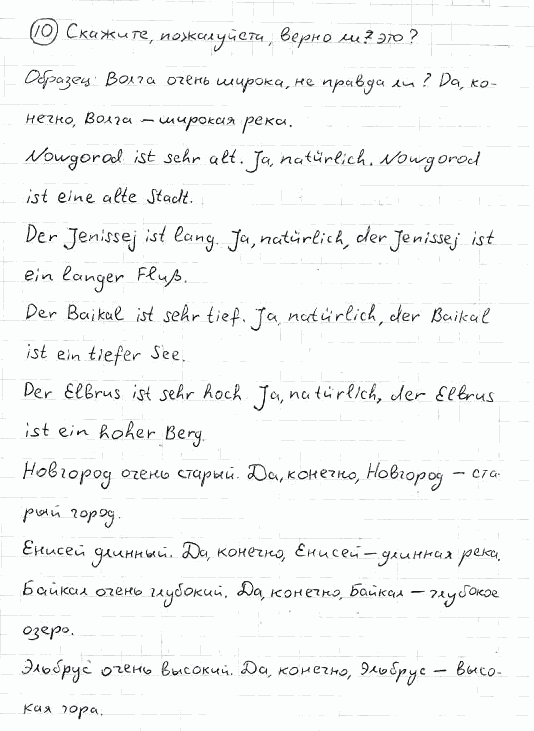 10 Скажите, пожалуйста, верно ли? это?
Образец: Волга очень широка, не правда ли? Да, ко-
нечно, Волга – широкая река.
Nowgorod ist sehr alt. Ja, natürlich. Nowgorod
ist eine alte Stadt.
Der Jenissej ist lang. Ja, natürlich, der Jenissej ist
ein langer Fluß.
Der Baikal ist sehr tief. Ja, natürlich, der Baikal
ist ein tiefer See.
Der Elbrus ist sehr hoch. Ja, natürlich, der Elbrus
ist ein hoher Berg.
Новгород очень старый. Да, конечно, Новгород – ста-
рый город.
Енисей длинный. Да, конечно, Енисей – длинная река.
Байкал очень глубокий. Да, конечно, Байкал – глубокое
озеро.
Эльбрус очень высокий. Да, конечно, Эльбрус – высо-
кая гора.